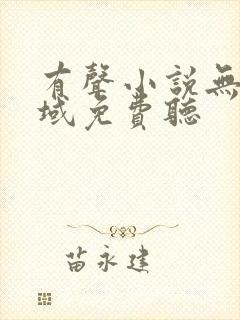 有聲小說無
域免費聽
苗永建